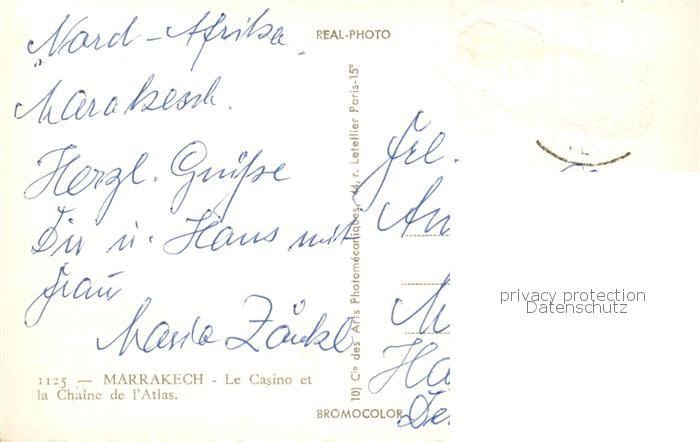 Nord-Afrika
Marakesch.
Herzl. Grüße
Dir u. Hans mit
Frau
Maria Zänkl
1125 — MARRAKECH - Le Casino et
la Chaîne de l'Atlas.
REAL-PHOTO
10) Cie des Arts Photomécaniques, 44, r. Letellier Paris-15e
BROMOCOLOR
Frl.
An
M
Ha
De
privacy protection
Datenschutz